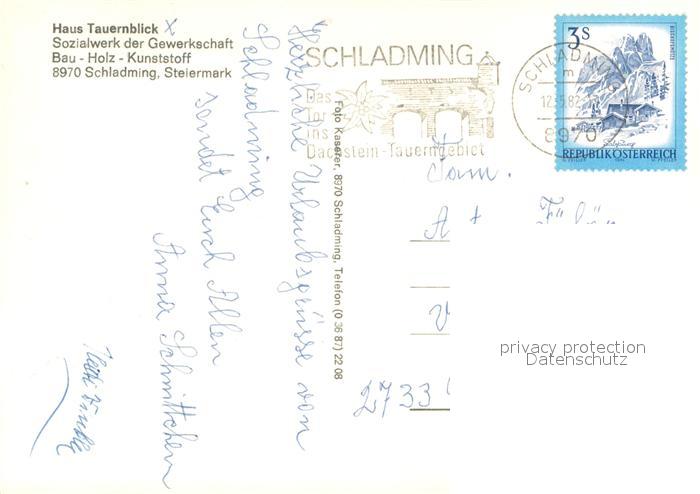 Haus Tauernblick x
Sozialwerk der Gewerkschaft
Bau - Holz - Kunststoff
8970 Schladming, Steiermark
SCHLADMING
Das
Tor
ins
Dachstein-Tauerngebiet
SCHLADMING
12.-5.82
8970
3S
REPUBLIK ÖSTERREICH
Foto Kaserer, 8970 Schladming, Telefon (0 36 87) 22 08
Herzliche Urlaubsgrüsse von
Schladming
sendet Euch Allen
Anna Schnittchen
Fam.
A
V
2733
privacy protection
Datenschutz